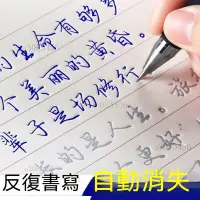 的生命有够多
个美丽的黄昏。
辈子是场修行
的是人生。旅
个更好
反復書寫 自動消失